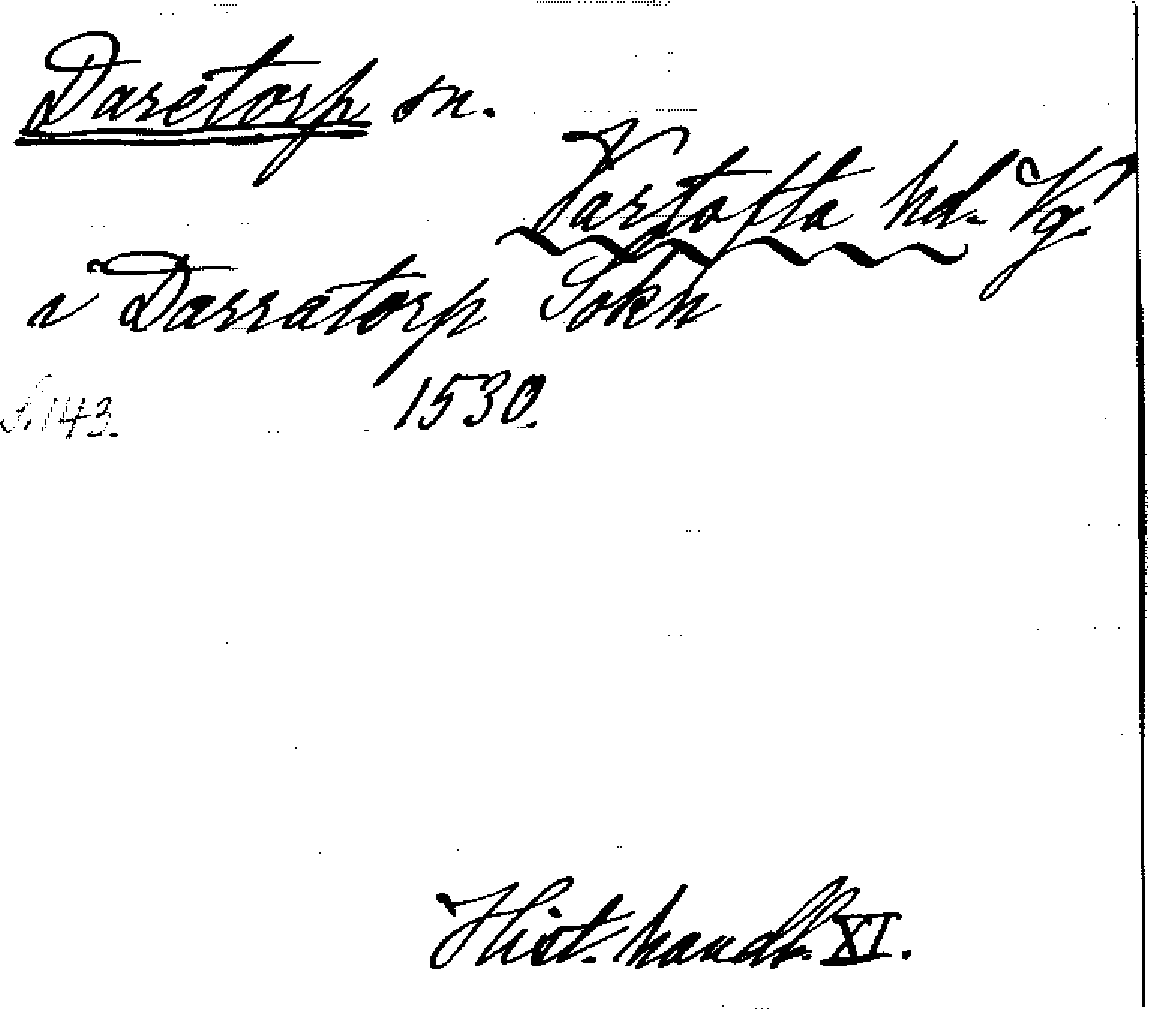 Daretorp sn.
Vartofta hd. Vg
i Darratorp Sokn
S. 143. 1530.
Hist. handl. XI.